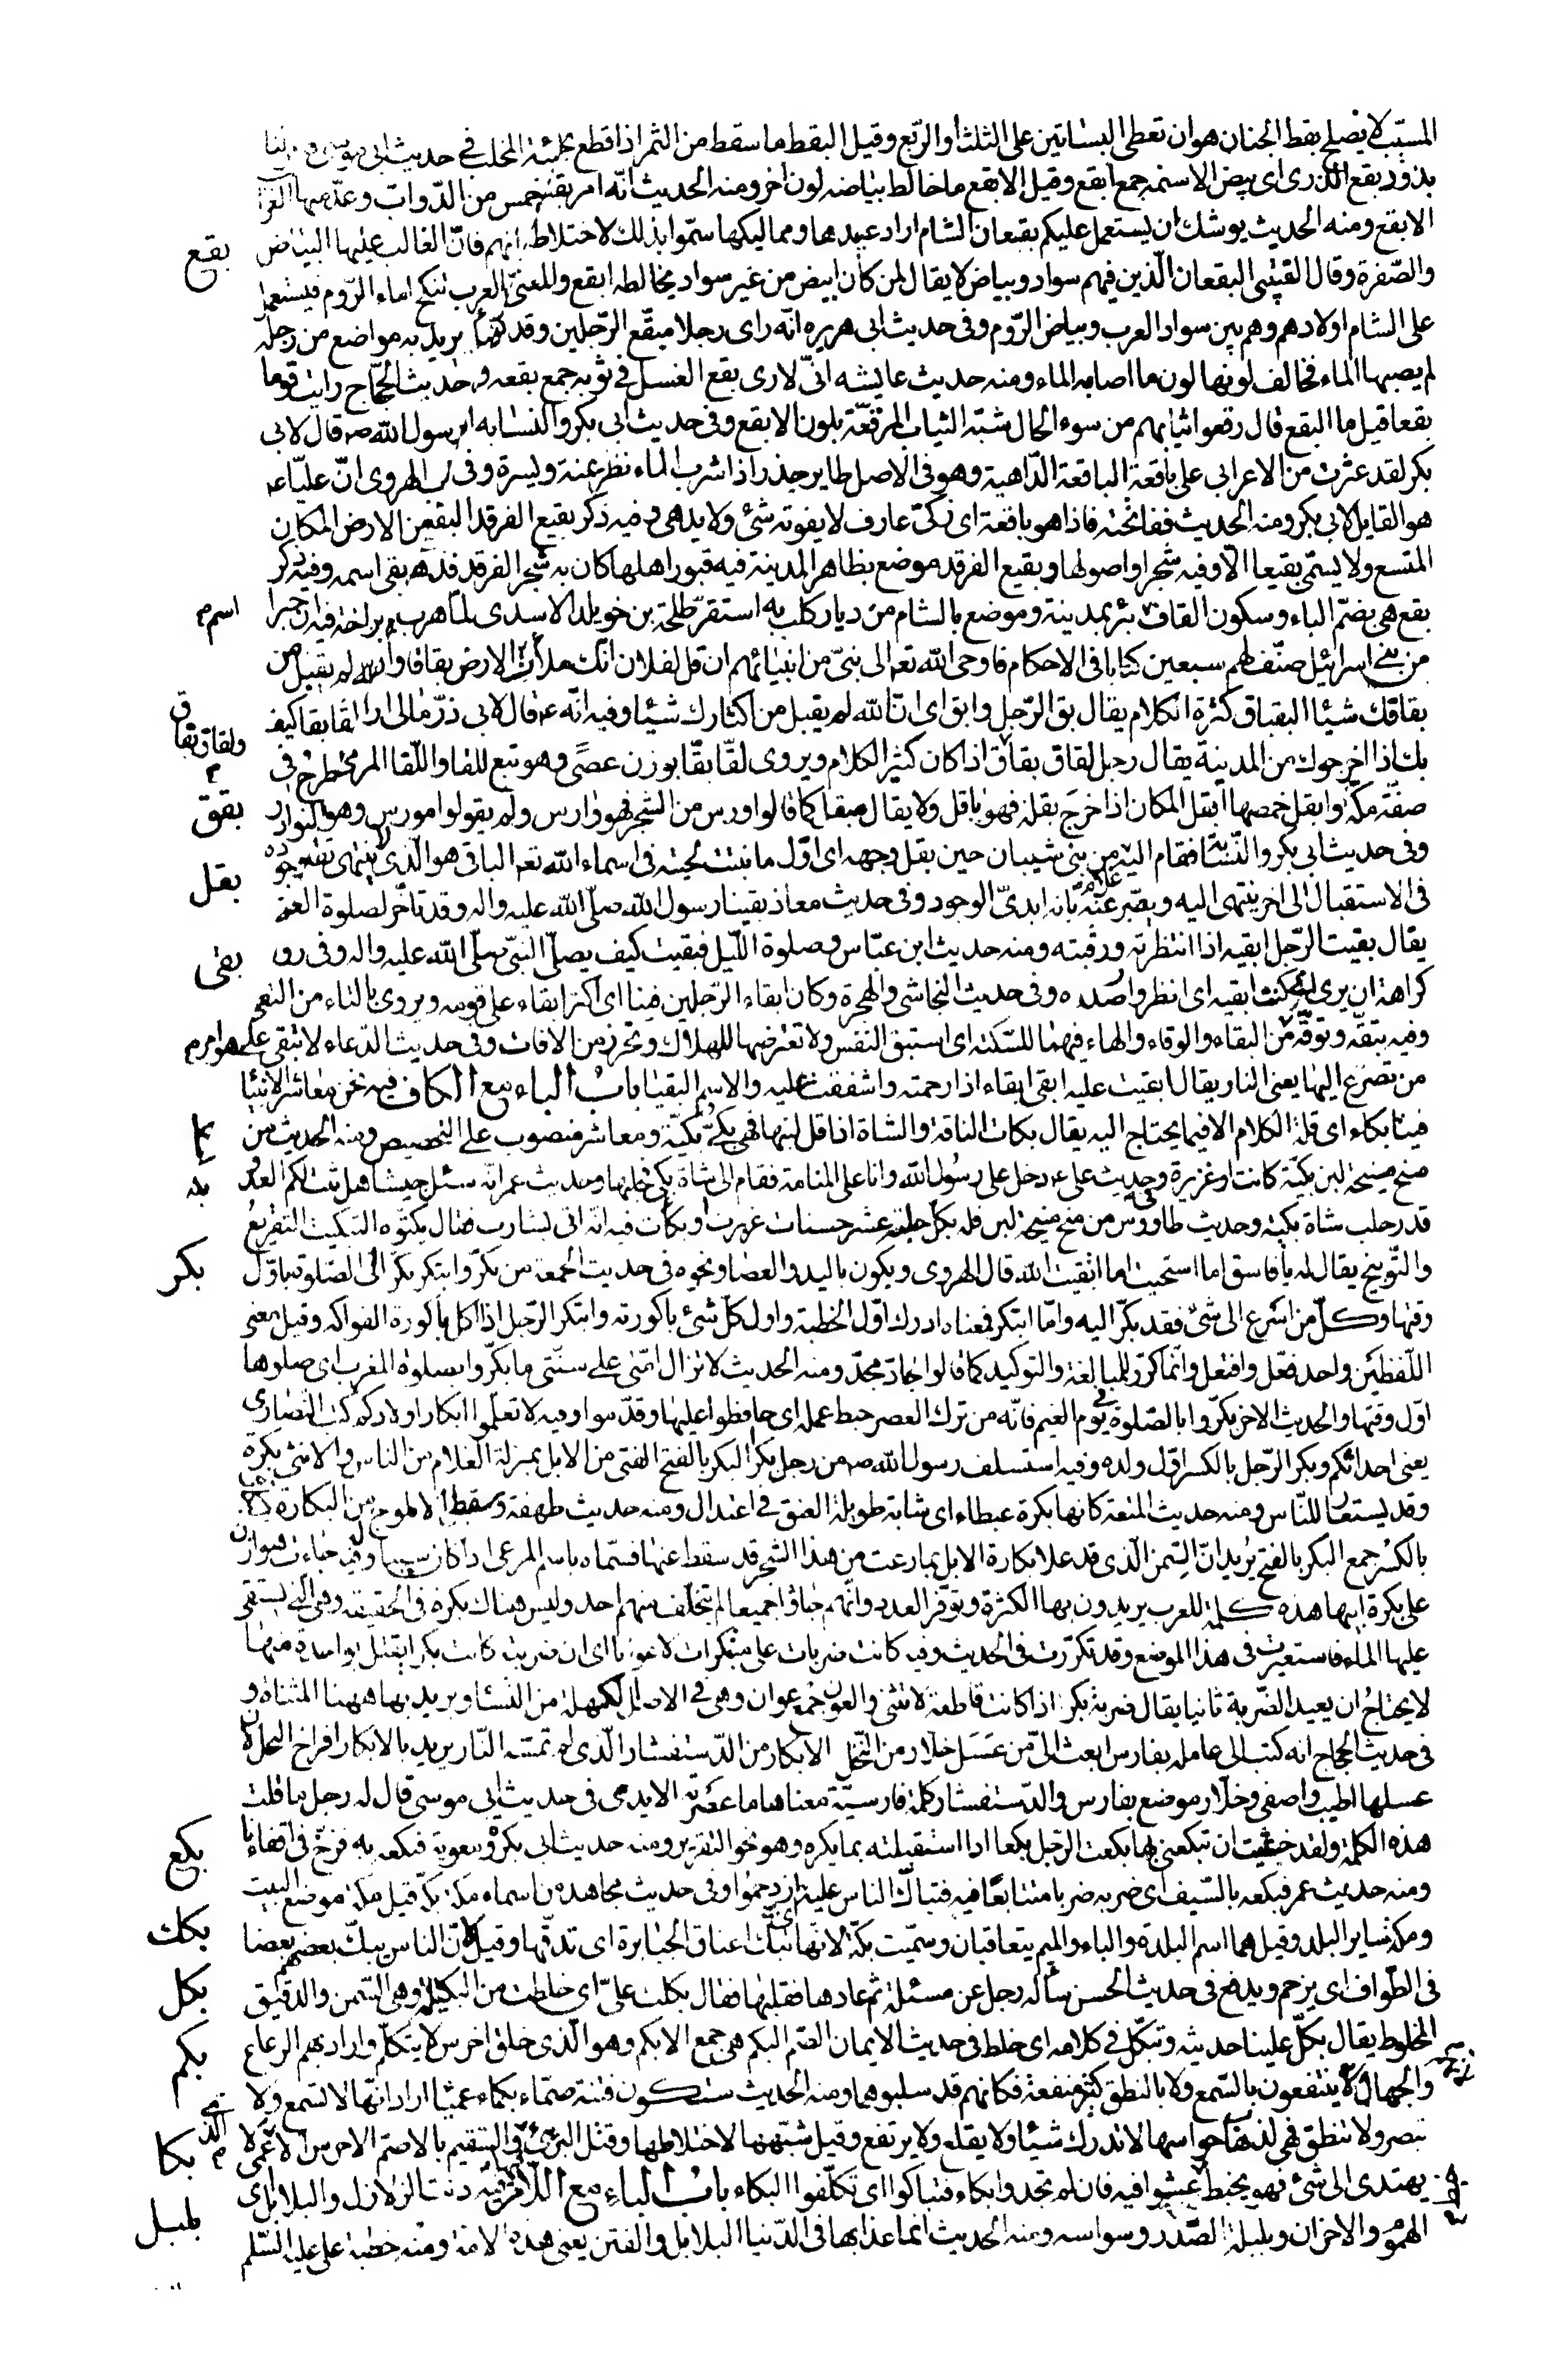 المسيّب لا يصلح بقط الجنان هو ان تعطى البساتين على الثلث او الرّبع وقيل البقط ما سقط من الثمر اذا قطع يخطئه المخلب فى حديث ابى موسى
بذود بقع الذرى اى بيض الاسنمه جمع ابقع وقيل الابقع ما خالط بياضه لون اخر ومنه الحديث انّه امر بقتل خمس من الدّوابّ وعدّ منها الغراب
الابقع ومنه الحديث يوشك ان يستعمل عليكم بقعان الشام اراد عبيدها ومماليكها سمّوا بذلك لاختلاط الوانهم فانّ الغالب عليها البياض
بقع
والصّفرة وقال القتيبى البقعان الّذين فيهم سواد وبياض لا يقال لمن كان ابيض من غير سواد يخالطه ابقع والمعنى انّ العرب تنكح اماء الرّوم فيستعمل
على الشام اولادهم وهم بين سواد العرب وبياض الرّوم وفى حديث ابى هريره انّه راى رجلا مبقّع الرّجلين وقد توضّأ يريد به مواضع من رجله
لم يصبها الماء فخالف لونها لون ما اصابه الماء ومنه حديث عايشه انّى لارى بقع الغسل فى ثوبه جمع بقعه وحديث الحجّاج رايت قوما
بقعا قيل ما البقع قال رقعوا ثيابهم من سوء الحال شبّه الثياب المرقّعة بلون الابقع وفى حديث ابى بكر والنسّابه ان رسول الله ص قال لابى
بكر لقد عثرت من الاعرابى على باقعة الباقعة الدّاهية وهو فى الاصل طاير حذر اذا شرب الماء نظر يمنة ويسرة وفى كتاب الهروى انّ عليّا ع
هو القايل لابى بكر ومنه الحديث ففاتحته فاذا هو باقعة اى ذكىّ عارف لا يفوته شئ ولا يدهى وفيه ذكر بقيع الغرقد البقيع من الارض المكان
المتّسع ولا يسمّى بقيعا الّا وفيه شجر او اصولها وبقيع الغرقد موضع بظاهر المدينة فيه قبور اهلها كان به شجر الغرقد فذهب وبقى اسمه وفيه ذكر
بقع هى بضمّ الباء وسكون القاف اسم بئر بمدينة وموضع بالشام من ديار كلب به استقرّ طلحة بن خويلد الاسدى لمّا هرب يوم بزاخة فيه ان حبرا
من بنى اسرائيل صنّف لهم سبعين كتابا فى الاحكام فاوحى الله تعه الى نبىّ من انبيائهم ان قل لفلان انّك ملأت الارض بقاقا وانّ الله لم يقبل من
بقاقك شيئا البقاق كثرة الكلام يقال بق الرّجل وابق اى انّ الله لم يقبل من اكثارك شيئا وفيه انّه ع قال لابى ذرّ مالى اراك لقّا بقّا كيف
بك اذا اخرجوك من المدينة يقال رجل لقاق بقاق ولقاق بقاق اذا كان كثير الكلام ويروى لقّا بقّا بوزن عصًى وهو تبع للقا واللّقا المرمىّ المطروح فى
بقق
صفة مكّة وابقل حمضها ابقل المكان اذا خرج بقله فهو باقل ولا يقال مبقل كما قالوا اورس من الشجر فهو وارس ولم يقولوا مورس وهو من النوادر
وفى حديث ابى بكر والنّسّابة فقام اليه غلام من بنى شيبان حين بقل وجهه اى اوّل ما نبتت لحيته فى اسماء الله تعه الباقى هو الّذى لا ينتهى تقدير وجوده
بقل
فى الاستقبال الى اخر ينتهى اليه ويعبّر عنه بانّه ابدىّ الوجود وفى حديث معاذ بقينا رسول الله صلّى الله عليه واله وقد تاخّر لصلوة العتمة
يقال بقيت الرّجل ابقيه اذا انتظرته ورقبته ومنه حديث ابن عبّاس وصلوة اللّيل فبقيت كيف يصلّى النبىّ صلّى الله عليه واله وفى رواية
بقى
كراهة ان يرى انّى كنت ابقيه اى انظره وارصده وفى حديث النجاشى والهجرة وكان ابقاء الرّجلين فينا اى اكثر ابقاء على قومه ويروى بالتاء من التقى
وفيه تبقّه وتوقّه هو امر من البقاء والوقاء والهاء فيهما للسّكته اى استبق النفس ولا تعرّضها للهلاك وتحرز من الافات وفى حديث الدّعاء لا تبقى على
من تضرّع اليها يعنى النار يقال ابقيت عليه ابقى ابقاء اذا رحمته واشفقت عليه والاسم البقيا باب الباء مع الكاف فيه نحن معاشر الانبيا
فينا بكاء اى قلّة الكلام الا فيما يحتاج اليه يقال بكات الناقة والشاة اذا قل لبنها فهى بكىّ وبكيّة ومعاشر منصوب على التخصيص ومنه الحديث من
منح منيحة لبن بكيّة كانت او غزيرة وحديث على ع دخل على رسول الله وانا على المنامة فقام الى شاة بكى فحلبها وحديث عمر انه سئل جيشا هل ثبت لكم العدوّ
قدر حلب شاة بكية وحديث طاووس من منح منيحة لبن فله بكلّ حلبة عشر حسنات غزرت او بكأت فيه انّه اتى بشارب فقال بكتّوه التبكيت التقريع
والتّوبيخ يقال له يا فاسق اما استحييت اما اتّقيت الله قال الهروى ويكون باليد والعصا ونحوه فى حديث الجمعة من بكّر وابتكر بكّر اتى الصّلوة اوّل
بكر
وقتها وكلّ من اسرع الى شئ فقد بكّر اليه وامّا ابتكر فمعناه ادرك اوّل الخطبة واول كلّ شئ باكورته وابتكر الرّجل اذا اكل باكورة الفواكه وقيل معنى
اللّفظين واحد فعّل وافتعل وانّما كرّر للمبالغة والتوكيد كما قالوا جادّ مجدّ ومنه الحديث لا تزال امّتى على سنّتى ما بكّروا بصلوة المغرب اى صلوها
اوّل وقتها والحديث الاخر بكّروا بالصّلوة فى يوم الغيم فانّه من ترك العصر حبط عمله اى حافظوا عليها وقدّموا وفيه لا تعلّموا ابكار اولادكم كتب النّصارى
يعنى احداثكم وبكر الرّجل بالكسر اوّل ولده وفيه استسلف رسول الله ص من رجل بكرا البكر بالفتح الفتى من الابل بمنزلة الغلام من الناس والانثى بكرة
وقد يستعار للنّاس ومنه حديث المتعة كانها بكرة عيطاء اى شابة طويلة العنق فى اعتدال ومنه حديث طهفة وسقط الاملوج من البكارة
بالكسر جمع البكر بالفتح يريد انّ السّمن الّذى قد علا بكارة الابل بما رعت من هذا الشجر قد سقط عنها فسمّاه باسم المرعى اذا كان سببا وفيه جاءت هوازن
على بكرة ابيها هذه كلمة للعرب يريدون بها الكثرة وتوفّر العدد وانّهم جاؤا جميعا لم يتخلّف منهم احد وليس هناك بكرة فى الحقيقة وهى الّتى يستقى
عليها الماء فاستعيرت فى هذا الموضع وقد تكرّرت فى الحديث وفيه كانت ضربات على مبتكرات لا عونا اى ان ضربته كانت بكرا يقتل بواحدة منها
لا يحتاج ان يعيد الضّربة ثانيا يقال ضربة بكر اذا كانت قاطعة لا تثنى والعون جمع عوان وهى فى الاصل الكهلة من النّساء ويريد بها ههنا المثناة و
فى حديث الحجاج انه كتب الى عامله بفارس ابعث الىّ من عسل خلار من النّحل الابكار من الدّستفشار الّذى لم تمسّه النّار يريد بالابكار افراخ النحل لان
عسلها اطيب واصفى وخلّار موضع بفارس والدّستفشار كلمة فارسيّة معناها ما عصرته الايدى فى حديث ابى موسى قال له رجل ما قلت
هذه الكلمة ولقد خشيت ان تبكعنى بها بكعت الرّجل بكعا اذا استقبلته بما يكره وهو نحو التقريع ومنه حديث ابى بكرة ومعوية فبكعه به فزخّ فى اقفائنا
بكع
ومنه حديث عمر فبكعه بالسّيف اى ضربه ضربا متتابعا فيه فتباكّ الناس عليه اى ازدحموا وفى حديث مجاهد من اسماء مكة بكّة قيل بكة موضع البيت
ومكة ساير البلد وقيل هما اسم البلدة والباء والميم يتعاقبان وسمّيت بكّة لانّها تبك اعناق الجبابرة اى تدقّها وقيل لانّ الناس يبكّ بعضهم بعضا
بكك
فى الطّواف اى يزحم ويدفع فى حديث الحسن ساله رجل عن مسئلة ثم عادها فقلبها فقال بكلت علىّ اى خلطت من البكيلة وهى السّمن والدقيق
بكل
المخلوط يقال بكّل علينا حديثه وتبكّل فى كلامه اى خلط فى حديث الايمان الصّم البكم هى جمع الابكم وهو الّذى خلق اخرس لا يتكلّم واراد بهم الرعاع
بكم
والجهال لانّهم لا ينتفعون بالسّمع ولا بالنطق كثير منفعة فكانهم قد سلبوهما ومنه الحديث ستكون فتنة صمّاء بكماء عميا اراد انّها لا تسمع ولا
تبصر ولا تنطق فهى لذهاب حواسها لا تدرك شيئا ولا يقلع ولا يرتفع وقيل شبّهها لاختلاطها وقتل البرئ فيها والسّقيم بالاصمّ الاخرس الاعمى الذى لا
بكا
يهتدى الى شئ فهو يخبط خبط عشوا فيه فان لم تجدوا بكاء فتباكوا اى تكلّفوا البكاء باب الباء مع اللام فيه دنت الزلازل والبلابل اى
الهموم والاحزان وبلبلة الصّدر وسواسه ومنه الحديث انّما عذابها فى الدّنيا البلابل والفتن يعنى هذه الامّة ومنه خطبة على عليه السّلم
بلبل